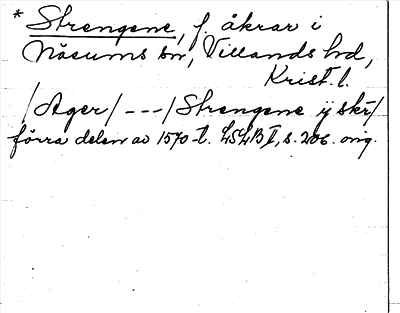 * Strengene, f. åkrar i
Näsums sn, Villands hd,
Krist. l.
/Ager/ --- / Strengene ij skr/
förra delen av 1570-t. LSLB II, s. 206. orig.